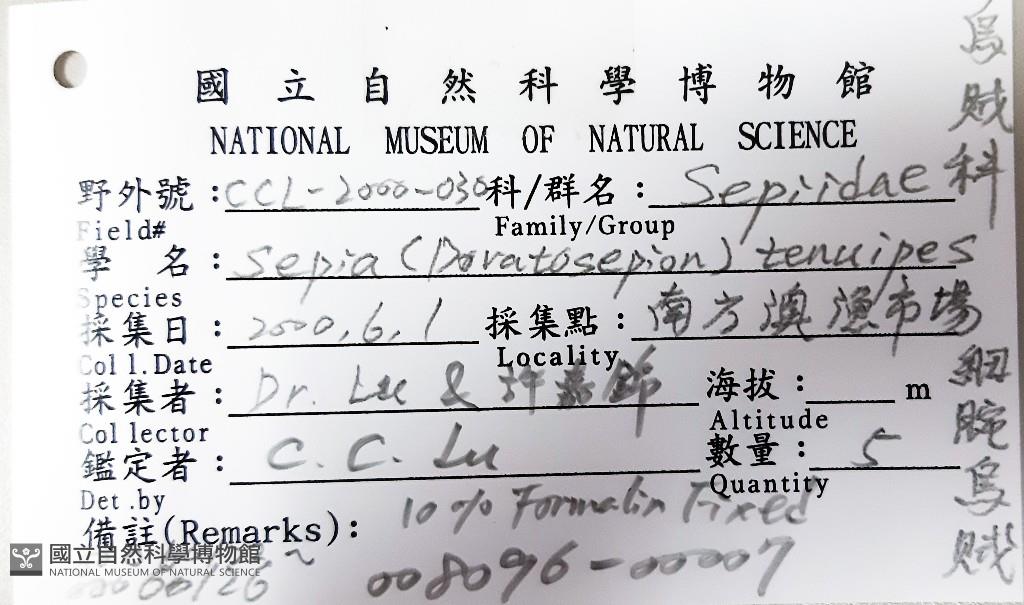 國立自然科學博物館
NATIONAL MUSEUM OF NATURAL SCIENCE
野外號：CCL-2000-030 科/群名：Sepiidae
Field# Family/Group
學名：Sepia (Doratosepion) tenuipes
Species
採集日：2000,6,1 採集點：南方澳漁市場
Coll.Date Locality
採集者：Dr. Lu & 許嘉錦 海拔： m
Collector Altitude
鑑定者：C. C. Lu 數量：5
Det.by Quantity
備註(Remarks)：10% Formalin Fixed
008096-00007
烏賊科
細腕烏賊
國立自然科學博物館
NATIONAL MUSEUM OF NATURAL SCIENCE